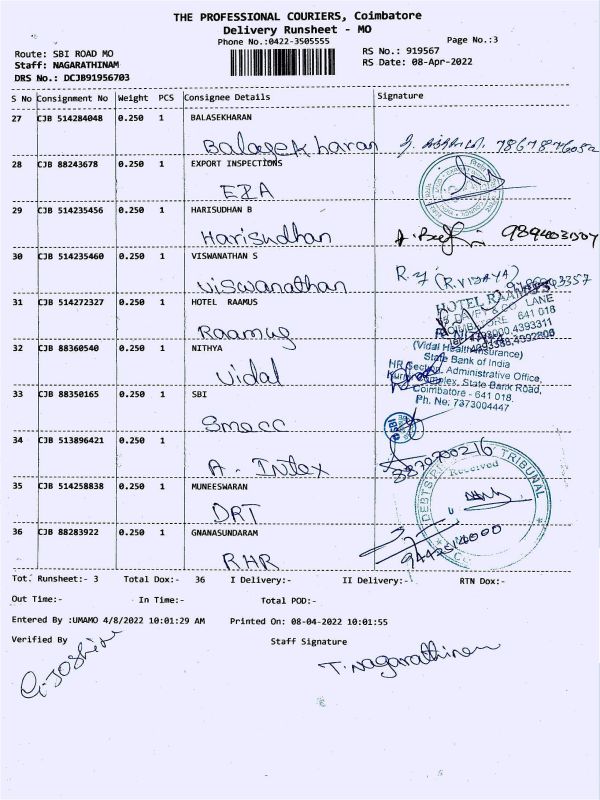 THE PROFESSIONAL COURIERS, Coimbatore
Delivery Runsheet - MO
Phone No.:0422-3505555
Page No.:3
Route: SBI ROAD MO
RS No.: 919567
Staff: NAGARATHINAM
RS Date: 08-Apr-2022
DRS No.: DCJB91956703
S No Consignment No Weight PCS Consignee Details Signature
27 CJB 514284048 0.250 1 BALASEKHARAN
Balasekharan
28 CJB 88243678 0.250 1 EXPORT INSPECTIONS
EIA
29 CJB 514235456 0.250 1 HARISUDHAN B
Harisudhan
30 CJB 514235460 0.250 1 VISWANATHAN S
Viswanathan R. (R.VIJAYA)
31 CJB 514272327 0.250 1 HOTEL RAAMUS
HOTEL RAAMUS
LANE
641 018
4393311
Raamus
32 CJB 88360540 0.250 1 NITHYA
(Vidal Health Insurance)
State Bank of India
Vidal
HR Section, Administrative Office,
33 CJB 88350165 0.250 1 SBI
Complex, State Bank Road,
Coimbatore - 641 018.
Ph. No: 7373004447
Smecc
34 CJB 513896421 0.250 1
A - Intex 8870700216
35 CJB 514258838 0.250 1 MUNEESWARAN
DEBTS TRIBUNAL
Received
DRT
36 CJB 88283922 0.250 1 GNANASUNDARAM
RHR 9442514000
Tot. Runsheet:- 3 Total Dox:- 36 I Delivery:- II Delivery:- RTN Dox:-
Out Time:- In Time:- Total POD:-
Entered By :UMAMO 4/8/2022 10:01:29 AM Printed On: 08-04-2022 10:01:55
Verified By Staff Signature
T. Nagarathinam